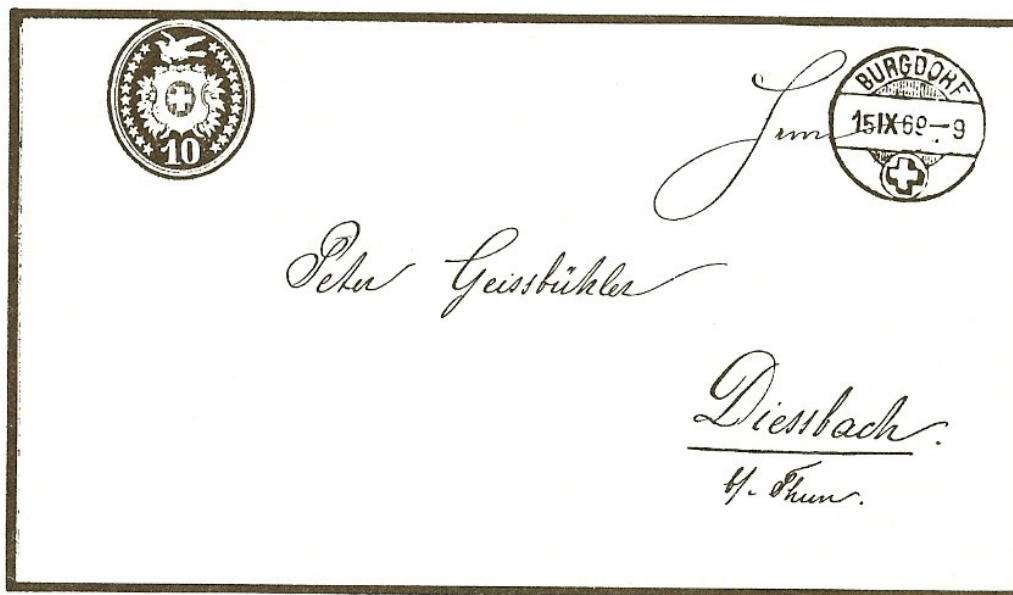 10
BURGDORF
15 IX 69—9
Peter Geissbühler
Diessbach.
b/. Thun.